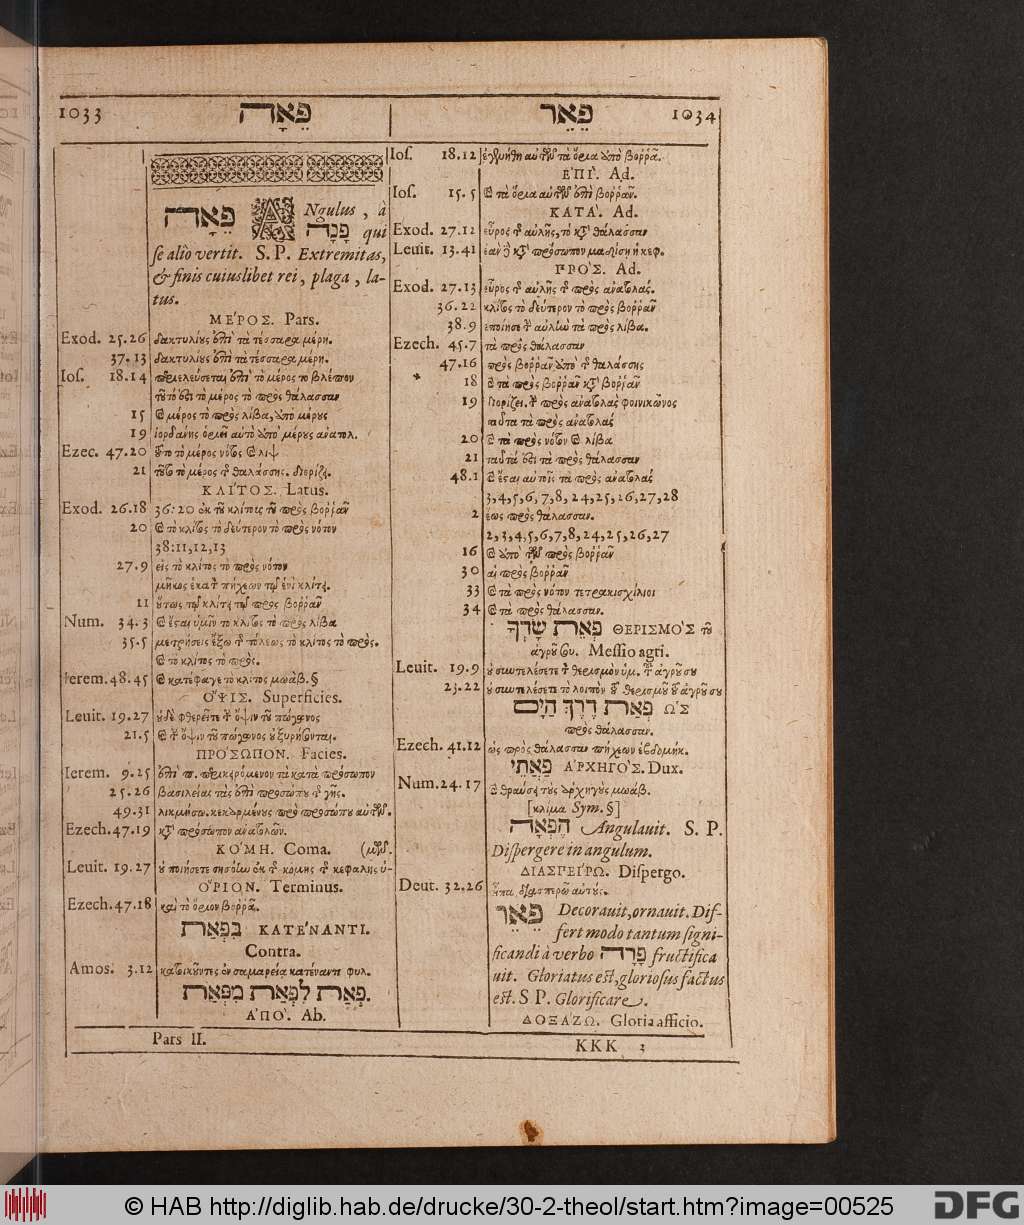 1033 פֵּאָה
פֵּאָה ANgulus, à
פָּנָה qui
se aliò vertit. S. P. Extremitas,
& finis cuiuslibet rei, plaga, la-
tus.
ΜΕ'ΡΟΣ. Pars.
Exod. 25.26 δακτυλίους ἐπὶ τὰ τέσσαρα μέρη.
37.13 δακτυλίους ἐπὶ τὰ τέσσαρα μέρη.
Ios. 18.14 ἐπὶ τὸ μέρος τὸ βλέπον
τοῦτό ἐστι τὸ μέρος τὸ πρὸς θάλασσαν
15 καὶ μέρος τὸ πρὸς λίβα, ἀπὸ μέρους
19 ἰορδάνης ὁριεῖ αὐτὸ ἀπὸ μέρους ἀνατολ.
Ezec. 47.20 τὸ μέρος νότος καὶ λὶψ
21 τοῦτο τὸ μέρος τῆς θαλάσσης. διορίζει.
ΚΛΙ'ΤΟΣ. Latus.
Exod. 26.18 36:20 ἐκ τοῦ κλίτους τοῦ πρὸς βορρᾶν
20 καὶ τὸ κλίτος τὸ δεύτερον τὸ πρὸς νότον
38:11,12,13
27.9 εἰς τὸ κλίτος τὸ πρὸς νότον
μῆκος ἑκατὸν πήχεων τῷ ἑνὶ κλίτει.
11 οὕτως τῷ κλίτει τῷ πρὸς βορρᾶν
Num. 34.3 καὶ ἔσται ὑμῖν τὸ κλίτος τὸ πρὸς λίβα
35.5 μετρήσεις ἔξω τῆς πόλεως τὸ κλίτος τὸ πρὸς.
καὶ τὸ κλίτος τὸ πρὸς.
Ierem. 48.45 καὶ κατέφαγε τὸ κλίτος μωάβ. §
Ο῎ΨΙΣ. Superficies.
Leuit. 19.27 οὐδὲ φθερεῖτε τὴν ὄψιν τοῦ πώγωνος
21.5 καὶ τὴν ὄψιν τοῦ πώγωνος οὐ ξυρήσονται.
ΠΡΟ'ΣΩΠΟΝ. Facies.
Ierem. 9.25 περικειρόμενον τὰ κατὰ πρόσωπον
25.26 βασιλείας τὰς ἐπὶ προσώπου τῆς γῆς.
49.31 λικμήσω. κεκαρμένους πρὸ προσώπου αὐτῶν.
Ezech. 47.19 κατὰ πρόσωπον ἀνατολῶν.
ΚΟ'ΜΗ. Coma. (μῶν.
Leuit. 19.27 οὐ ποιήσετε σισόην ἐκ τῆς κόμης τῆς κεφαλῆς ὑ-
Ο῞ΡΙΟΝ. Terminus.
Ezech. 47.18 καὶ τὸ ὅριον βορρᾶ.
בִּפְאַת ΚΑΤΕ'ΝΑΝΤΙ.
Contra.
Amos. 3.12 κατοικοῦντες ἐν σαμαρείᾳ κατέναντι φυλ.
פְּאַת לִפְאַת מִפְּאַת.
Α'ΠΟ'. Ab.
Pars II.
פֵּאֵר 1034
Ios. 18.12 ἐγενήθη αὐτῶν τὰ ὅρια ἀπὸ βορρᾶ.
ΕΠΙ'. Ad.
Ios. 15.5 καὶ τὰ ὅρια αὐτῶν ἐπὶ βορρᾶν.
ΚΑΤΑ'. Ad.
Exod. 27.12 εὖρος τῆς αὐλῆς, τὸ κατὰ θάλασσαν
Leuit. 13.41 ἐὰν δὲ κατὰ πρόσωπον μαδήσῃ ἡ κεφ.
ΠΡΟ'Σ. Ad.
Exod. 27.13 εὖρος τῆς αὐλῆς τῆς πρὸς ἀνατολάς.
36.22 κλίτος τὸ δεύτερον τὸ πρὸς βορρᾶν
38.9 ἐποίησε τὴν αὐλὴν τὰ πρὸς λίβα.
Ezech. 45.7 τὰ πρὸς θάλασσαν
47.16 πρὸς βορρᾶν ἀπὸ τῆς θαλάσσης
18 καὶ τὰ πρὸς βορρᾶν κατὰ βορρᾶν
19 διορίζει. τῆς πρὸς ἀνατολὰς φοινικῶνος
ταῦτα τὰ πρὸς ἀνατολάς
20 καὶ τὰ πρὸς νότον καὶ λίβα
21 ταῦτά ἐστι τὰ πρὸς θάλασσαν
48.1 καὶ ἔσται αὐτοῖς τὰ πρὸς ἀνατολάς
3,4,5,6,7,8,24,25,26,27,28
2 ἕως πρὸς θάλασσαν.
2,3,4,5,6,7,8,24,25,26,27
16 καὶ ἀπὸ τῶν πρὸς βορρᾶν
30 αἱ πρὸς βορρᾶν
33 καὶ τὰ πρὸς νότον τετρακισχίλιοι
34 καὶ τὰ πρὸς θάλασσαν.
פְּאַת שָׂדְךָ ΘΕΡΙΣΜΟ'Σ τοῦ
ἀγροῦ σου. Messio agri.
Leuit. 19.9 οὐ συντελέσετε τὸν θερισμὸν ὑμ. τοῦ ἀγροῦ σου
23.22 οὐ συντελέσετε τὸ λοιπὸν τοῦ θερισμοῦ τοῦ ἀγροῦ σου
פְּאַת דֶּרֶךְ הַיָּם Ω῾Σ
πρὸς θάλασσαν.
Ezech. 41.12 ὡς πρὸς θάλασσαν πήχεων ἑβδομήκ.
פַּאֲתֵי Α'ΡΧΗΓΟ'Σ. Dux.
Num. 24.17 καὶ θραύσει τοὺς ἀρχηγοὺς μωάβ.
[κλίμα Sym. §]
הִפְאָה Angulauit. S. P.
Dispergere in angulum.
ΔΙΑΣΠΕΙ'ΡΩ. Dispergo.
Deut. 32.26 εἶπα διασπερῶ αὐτούς.
פֵּאֵר Decorauit, ornauit. Dif-
fert modo tantum signi-
ficandi à verbo פָּרָה fructifica
uit. Gloriatus est, gloriosus factus
est. S P. Glorificare.
ΔΟΞΑ'ΖΩ. Gloria afficio.
KKK 3
© HAB http://diglib.hab.de/drucke/30-2-theol/start.htm?image=00525
DFG